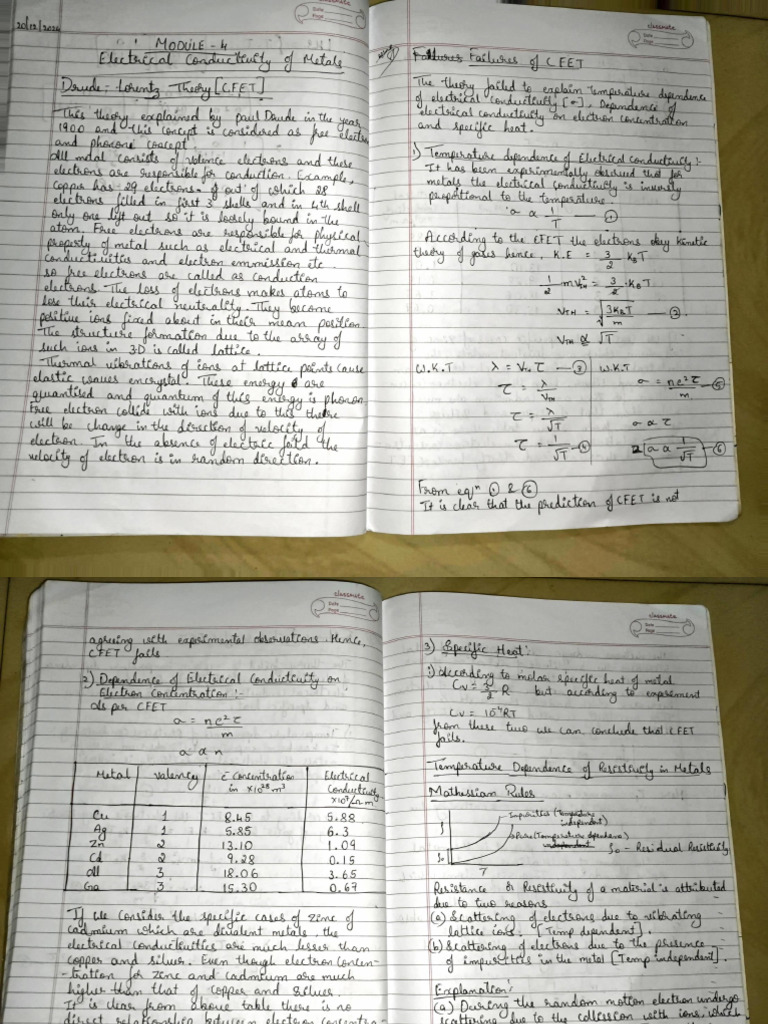 classmate
Date
Page
20/12/2024
MODULE - 4
Electrical Conductivity of Metals
Drude - Lorentz Theory [CFET]
This theory explained by paul Daude in the year
1900 and this concept is considered as free electron
and phonone concept.
All metal consists of valence electrons and these
electrons are responsible for conduction. Example,
copper has 29 electrons of out of which 28
electrons filled in first 3 shells and in 4th shell
only one lift out so it is loosely bound in the
atom. Free electrons are responsible for physical
property of metal such as electrical and thermal
conductivities and electron emmission etc.
so free electrons are called as conduction
electrons. The loss of electrons makes atoms to
lose their electrical neutrality. They become
positive ions fixed about in their mean position.
The structure formation due to the array of
such ions in 3-D is called lattice.
Thermal vibrations of ions at lattice points cause
elastic waves encrystal. These energy are
quantised and quantum of this energy is phonon
free electron collide with ions due to this there
will be change in the direction of velocity of
electron. In the absence of electric feild the
velocity of electron is in random direction.
classmate
Date
Page
Failures of CFET
The theory failed to explain temperature dependence
of electrical conductivity [σ]. Dependence of
electrical conductivity on electron concentration
and specific heat.
1) Temperature dependence of Electrical conductivity :-
It has been experimentally observed that for
metals the electrical conductivity is inversly
proportional to the temperature.
σ ∝ 1/T — ①
According to the CFET the electrons obey kinetic
theory of gases hence, K.E = 3/2 KBT
1/2 mV²th = 3/2 · KBT
VTH = √(3KBT/m) — ②
VTH ∝ √T
W.K.T λ = Vth τ — ③ W.K.T
τ = λ/Vth σ = ne²τ/m — ⑤
τ = λ/√T σ ∝ τ
τ = 1/√T — ④ σ ∝ 1/√T — ⑥
From eqn ① & ⑥
It is clear that the prediction of CFET is not
classmate
Date
Page
agreeing with experimental observations. Hence,
CFET fails
2) Dependence of Electrical conductivity on
Electron Concentration :-
As per CFET
σ = ne²τ/m
σ ∝ n
Metal Valency e⁻ Concentration in ×10²⁸ m³ Electrical Conductivity ×10⁷/Ω m
Cu 1 8.45 5.88
Ag 1 5.85 6.3
Zn 2 13.10 1.09
Cd 2 9.28 0.15
All 3 18.06 3.65
Ga 3 15.30 0.67
If we consider the specific cases of zinc of
cadmium which are divalent metals, the
electrical conductivities are much lesser than
copper and silver. Even though electron concen-
-tration for zinc and cadmium are much
higher than that of copper and silver.
It is clear from above table there is no
direct relationship between electron concentra-
classmate
Date
Page
3) Specific Heat :
1) According to molar specific heat of metal
Cv = 3/2 R but according to experiment
Cv = 10⁻⁴RT
from these two we can conclude that CFET
fails.
Temperature Dependence of Resistivity in Metals
Mathessian Rules
Impurities (Temperature
independent)
Pure (Temperature dependence)
independent
ρ
ρ₀
T
ρ₀ - Residual Resistivity
Resistance or Resistivity of a material is attributed
due to two reasons
(a) Scattering of electrons due to vibrating
lattice ions. [Temp dependent].
(b) Scattering of electrons due to the presence
of impurities in the metal [Temp independent].
Explanation:
(a) During the random motion electron undergo
scattering due to the collission with ions, which